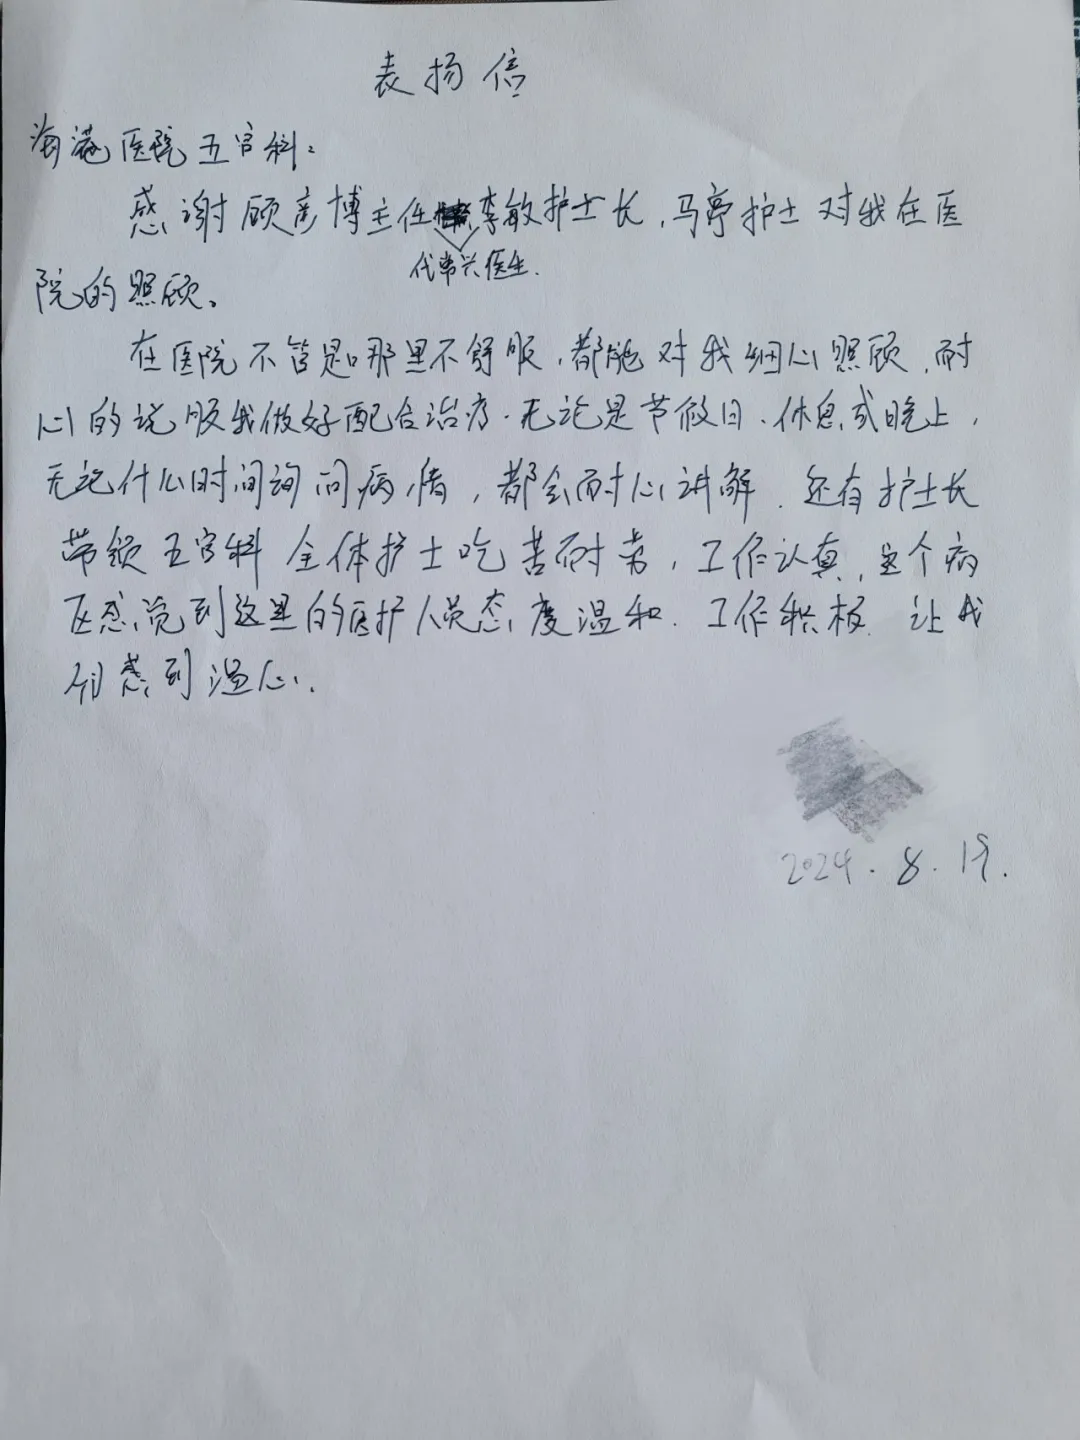 表扬信
海港医院五官科:
感谢顾彦博主任李敏护士长,马亭护士对我在医
代常兴医生.
院的照顾。
在医院不管是哪里不舒服,都能对我细心照顾,耐
心的说服我做好配合治疗.无论是节假日、休息或晚上,
无论什么时间询问病情,都会耐心讲解.还有护士长
带领五官科全体护士吃苦耐劳,工作认真,这个病
区感觉到这里的医护人员态度温和.工作积极.让我
们感到温心.
2024.8.19.